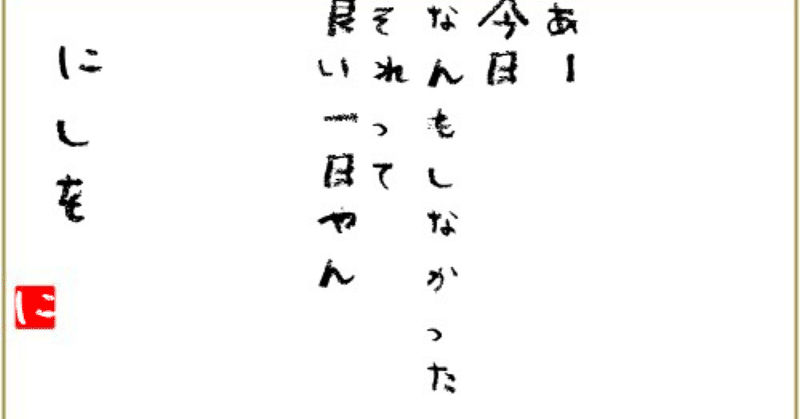 あー
今日
なんもしなかった
それって
良い一日やん
にしを
に